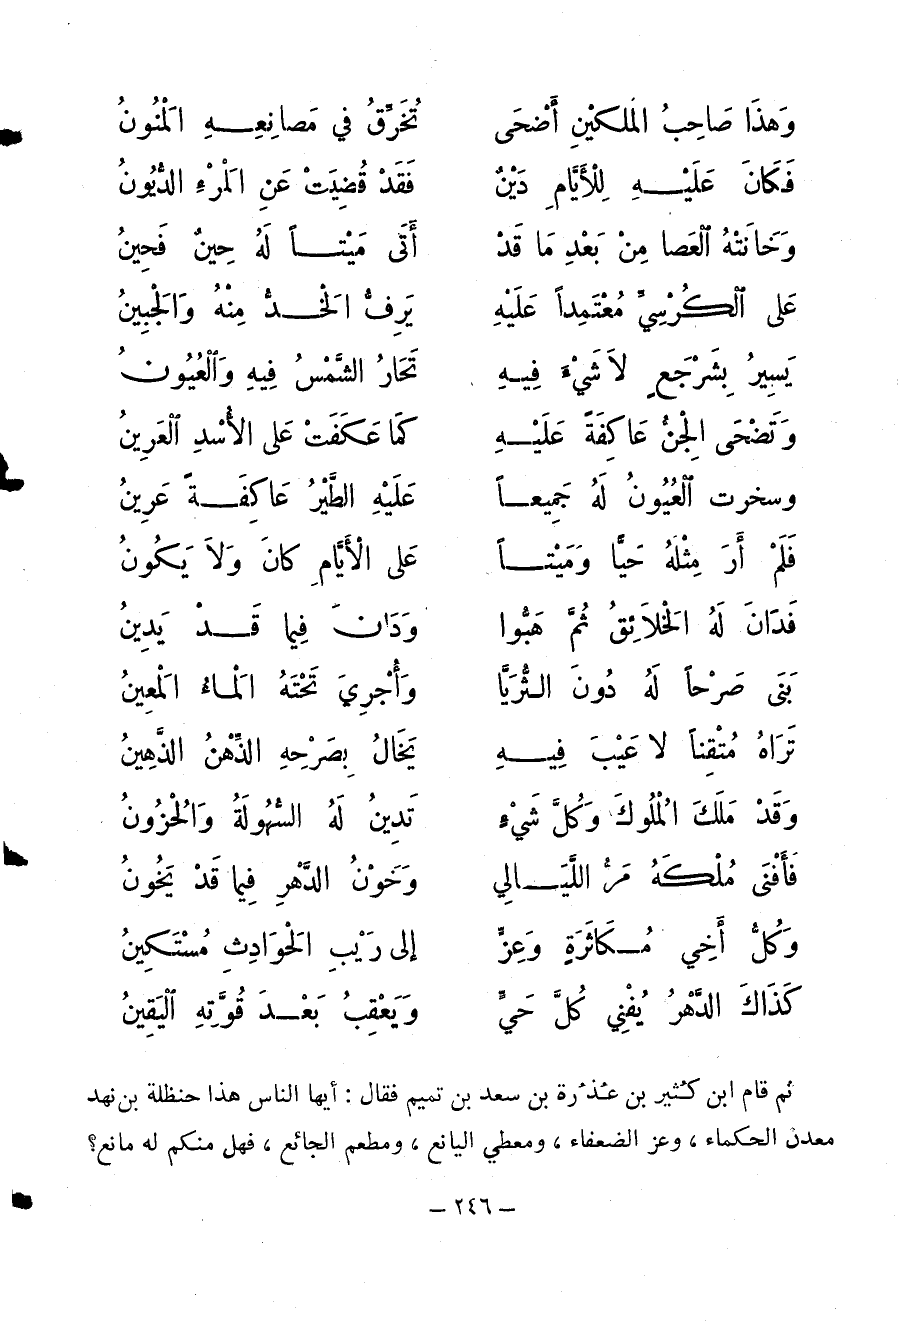 وَهذَا صَاحِبُ المَلكَيْنِ أَضْحَى تُخَرِّقُ في مَصانِعِهِ المْنُونُ
فَكَانَ عَلَيْهِ لِلْأَيَّامِ دَيْنٌ فَقَدْ قُضِيَتْ عَنِ المَرْءِ الدُّيُونُ
وَخَانَتْهُ الْعَصا مِنْ بَعْدِ مَا قَدْ أَتَى مَيْتاً لَهُ حِينٌ فَحِينُ
عَلى الْكُرْسِيِّ مُعْتَمِداً عَلَيْهِ يَرِفُّ الخَدُّ مِنْهُ وَالجَبِينُ
يَسِيرُ بِشَرْجَعٍ لاَ شَيْءَ فِيهِ تَحَارُ الشَّمْسُ فِيهِ وَالْعُيُونُ
وَتَضْحَى الجِنُّ عَاكِفَةً عَلَيْهِ كَمَا عَكَفَتْ عَلى الأُسْدِ الْعَرِينُ
وسخرت الْعُيُونُ لَهُ جَمِيعاً عَلَيْهِ الطَّيْرُ عَاكِفَةً عَرِينُ
فَلَمْ أَرَ مِثْلَهُ حَيًّا وَمَيْتاً عَلى الْأَيَّامِ كانَ وَلاَ يَكُونُ
فَدَانَ لَهُ الخَلاَئِقُ ثُمَّ هَبُّوا وَدَانَ فِيمَا قَدْ يَدِينُ
بَنَى صَرْحاً لَهُ دُونَ الثُّرَيَّا وَأُجْرِيَ تَحْتَهُ الْمَاءُ المَعِينُ
تَرَاهُ مُتْقِناً لا عَيْبَ فِيهِ يَخَالُ بِصَرْحِهِ الذِّهْنُ الذَّهِينُ
وَقَدْ مَلَكَ الْمُلُوكَ وَكُلَّ شَيْءٍ تَدِينُ لَهُ السُّهُولَةُ وَالْحُزُونُ
فَأَفْنَى مُلْكَهُ مَرُّ اللَّيَالِي وَخَوْنُ الدَّهْرِ فِيمَا قَدْ يَخُونُ
وَكُلُّ أَخِي مُكَاثَرَةٍ وَعِزٍّ إلى رَيْبِ الحَوَادِثِ مُسْتَكِينُ
كَذَاكَ الدَّهْرُ يُفْنِي كُلَّ حَيٍّ وَيَعْقِبُ بَعْدَ قُوَّتِهِ الْيَقِينُ
ثم قام ابن كُثير بن عُذْرة بن سعد بن تميم فقال : أيها الناس هذا حنظلة بن نهد
معدن الحكماء ، وعز الضعفاء ، ومعطي اليانع ، ومطعم الجائع ، فهل منكم له مانع؟
– ٢٤٦ –